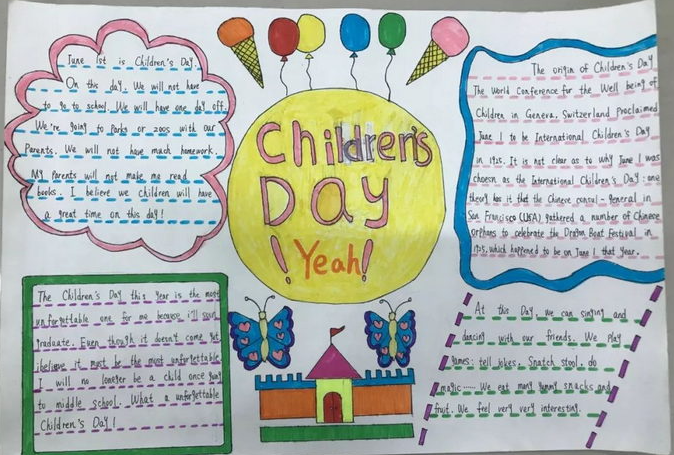 June 1st is Children's Day.
On this day. We will not have
to go to school. We will have one day off.
We're going to Parks or zoos with our
Parents. We will not have mach homework.
My Parents will not make me read
books. I believe we children will have
a great time on this day!
Children's
Day
! Yeah!
The origin of Children's Day
The World Conference for the Well being of
Children in Geneva, Switzerland Proclaimed
June 1 to be International Children's Day
in 1925. It is not clear as to why June 1 was
choesn as the International Children's Day: one
theory has it that the Chinese consul-general in
San Francisco (USA) gathered a number of Chinese
orphans to celebrate the Dragon Boat Festival in
1925, which happened to be on June 1 that year.
The Children's Day this year is the most
unforgettable one for me because i'll soon
graduate. Even though it doesn't come yet
ibelieve it must be the most unforgettable
I will no longer be a child once going
to middle school. What a unforgettable
Children's Day!
At this Day, we can singing and
dancing with our friends. We play
games: tell jokes. Snatch stool. do
magic...... We eat many yummy snacks and
fruit. We feel very very interesting.